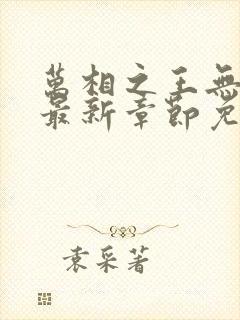 萬相之王無
最新章節免
袁采著